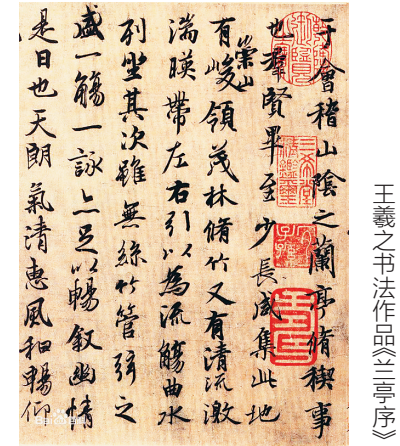 于會稽山陰之蘭亭脩稧事
也羣賢畢至少長咸集此地
有崇山峻領茂林脩竹又有清流激
湍暎帶左右引以為流觴曲水
列坐其次雖無絲竹管弦之
盛一觴一詠亦足以暢敘幽情
是日也天朗氣清惠風和暢仰
三希堂
精鑑璽
宜子孫
王羲之书法作品《兰亭序》
Bai百科